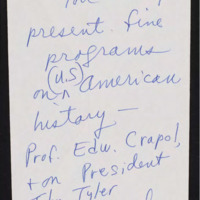 You
present fine
programs
(U.S)
on ^ American
history —
Prof. Edw. Crapol,
+ on President
John Tyler